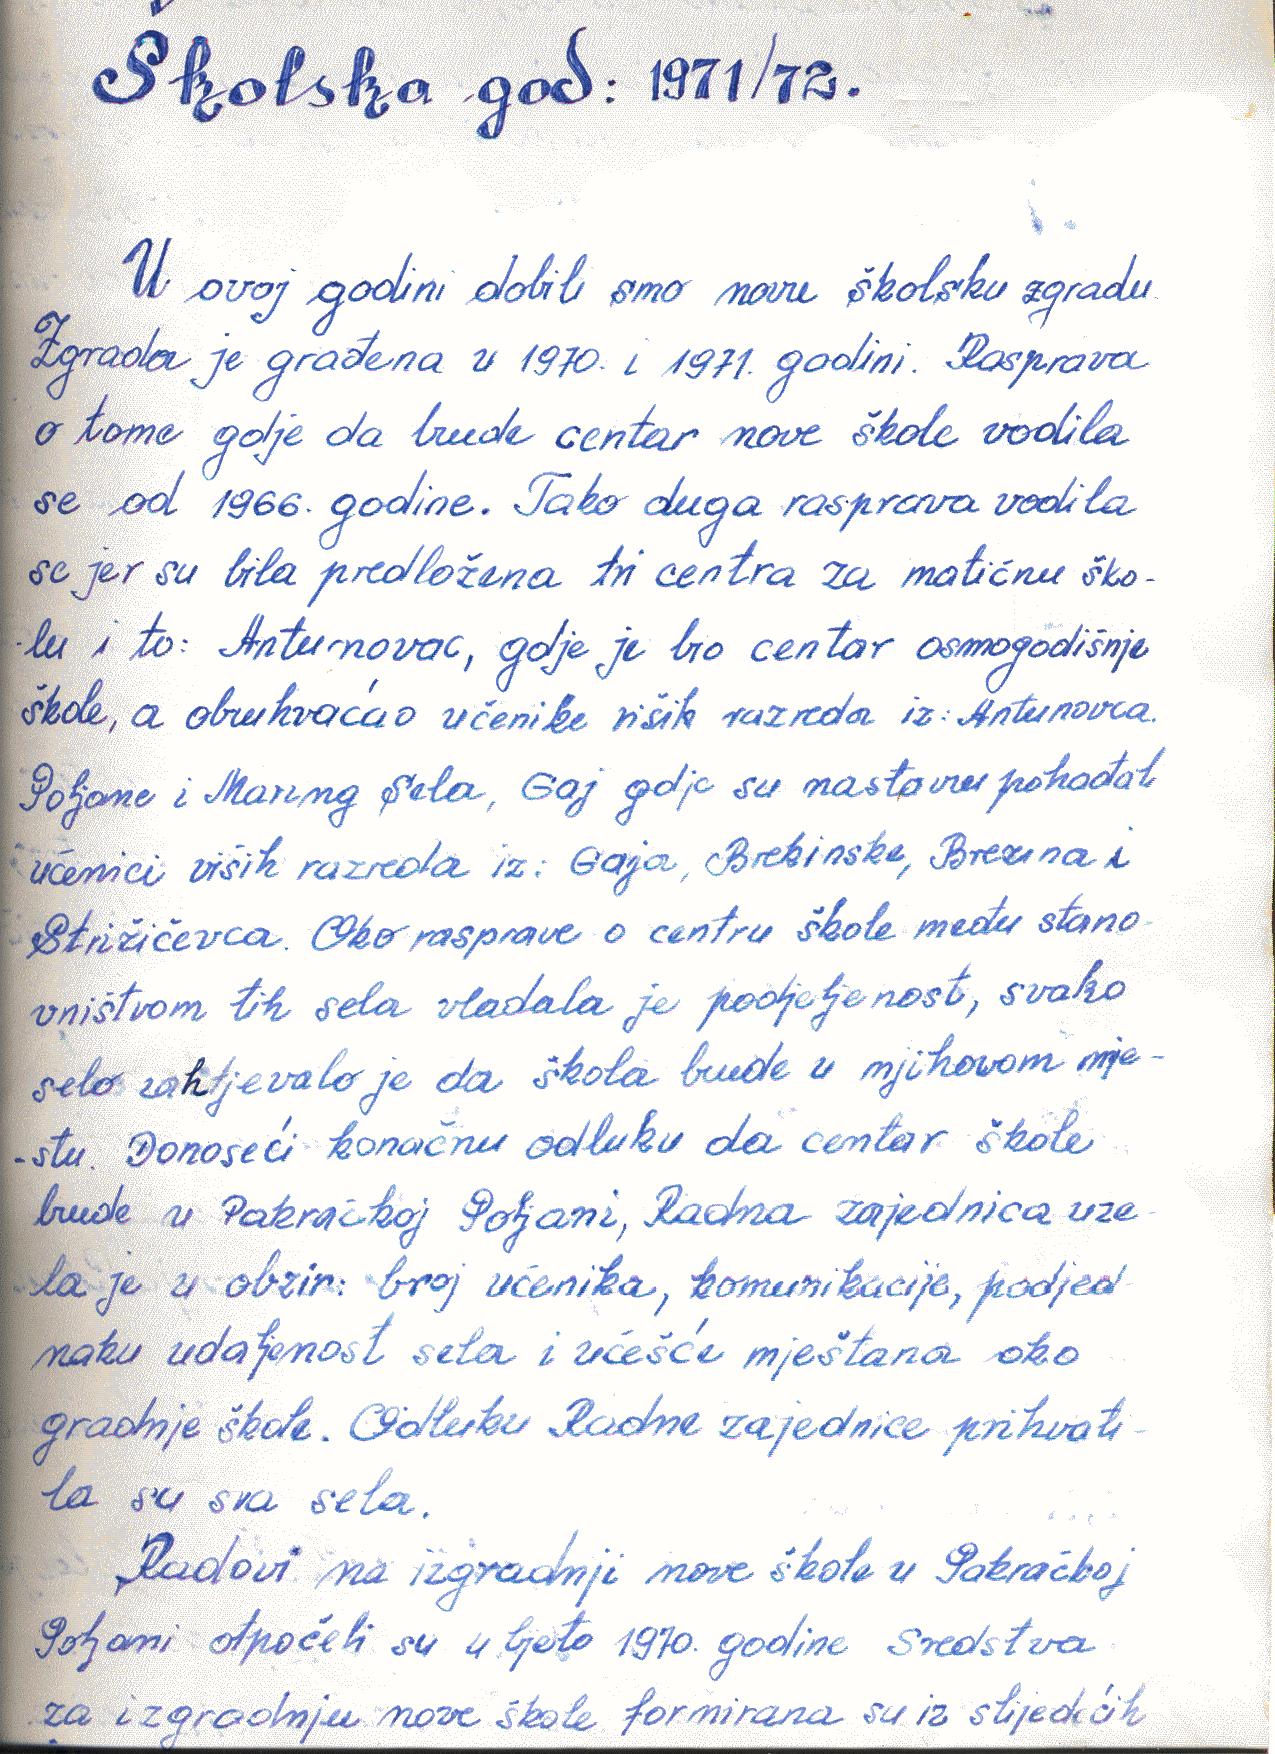 Školska god: 1971/72.
U ovoj godini dobili smo novu školsku zgradu
Zgrada je građena u 1970. i 1971. godini. Rasprava
o tome gdje da bude centar nove škole vodila
se od 1966. godine. Tako duga rasprava vodila
se jer su bila predložena tri centra za matičnu ško-
-lu i to: Antunovac, gdje je bio centar osmogodišnje
škole, a obuhvaćao učenike viših razreda iz: Antunovca.
Poljane i Marinog Sela, Gaj gdje su nastavu pohađali
učenici viših razreda iz: Gaja, Brekinske, Brezina i
Strižičevca. Oko rasprave o centru škole među stano-
vništvom tih sela vladala je podjeljenost, svako
selo zahtjevalo je da škola bude u njihovom mje-
-stu. Donoseći konačnu odluku da centar škole
bude u Pakračkoj Poljani, Radna zajednica uze-
la je u obzir: broj učenika, komunikacije, podjed-
naku udaljenost sela i učešće mještana oko
gradnje škole. Odluku Radne zajednice prihvati-
la su sva sela.
Radovi na izgradnji nove škole u Pakračkoj
Poljani otpočeli su u ljeto 1970. godine Sredstva
za izgradnju nove škole formirana su iz slijedećih